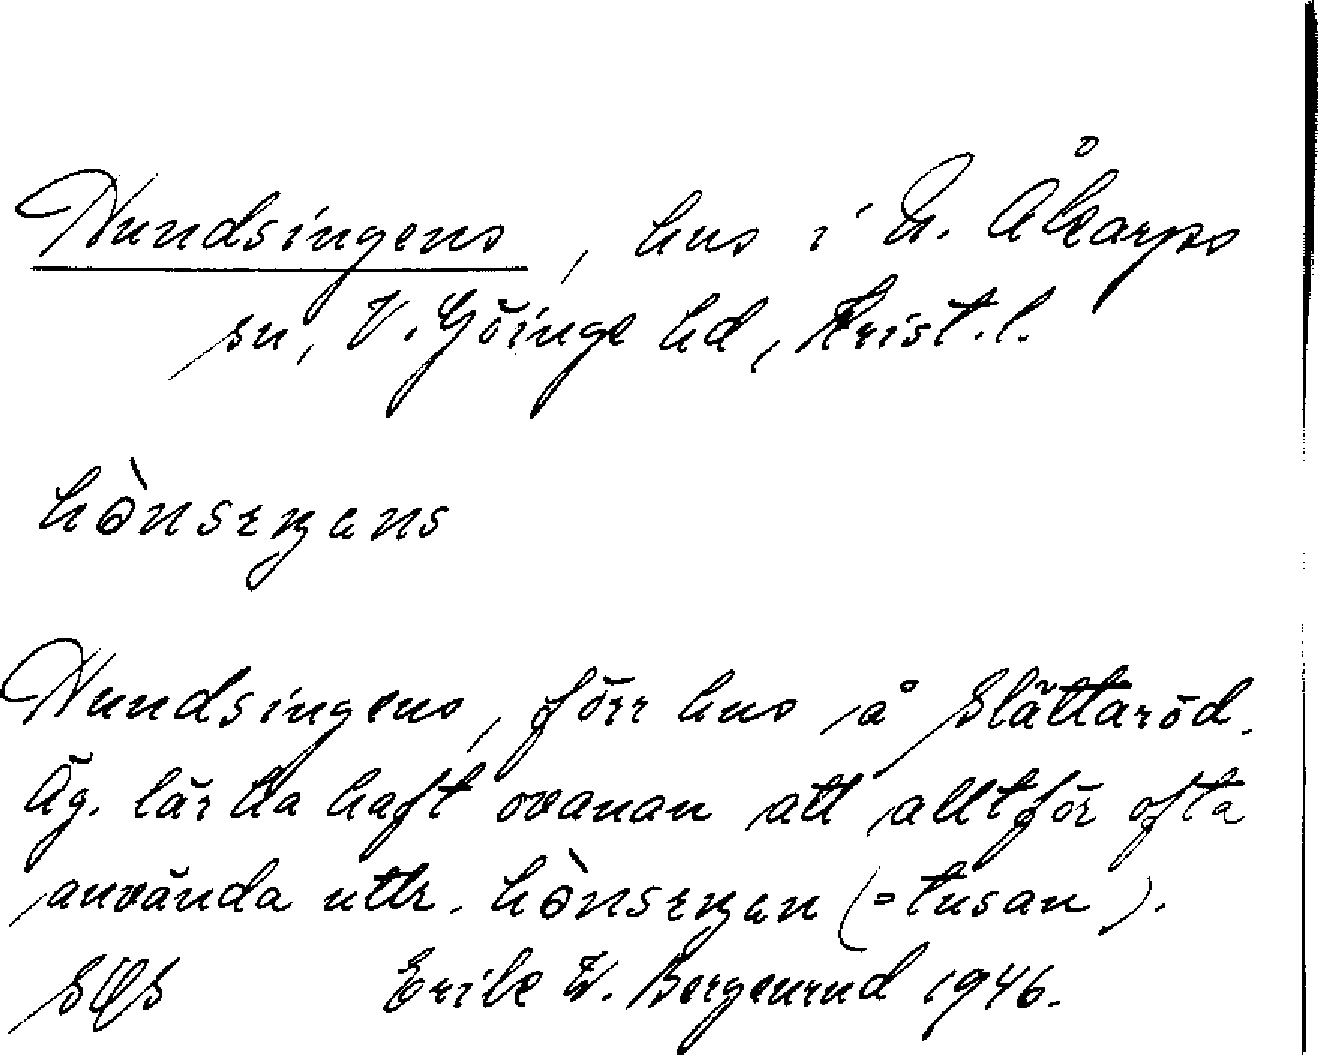 Hundsingens, hus i N. Åkarps
sn, V. Göinge hd, Krist. l.
hònsɛŋans
Hundsingens, förr hus å Slättaröd.
Äg. lär ha haft ovanan att alltför ofta
använda uttr. hònsɛŋan (= tusan).
SOS Erik W. Bergenrud 1946.